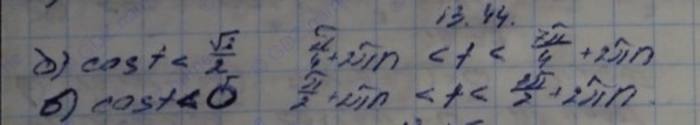 13.44.
а) cos t < √2/2 π/4 + 2πn < t < 7π/4 + 2πn
б) cos t < 0 π/2 + 2πn < t < 3π/2 + 2πn